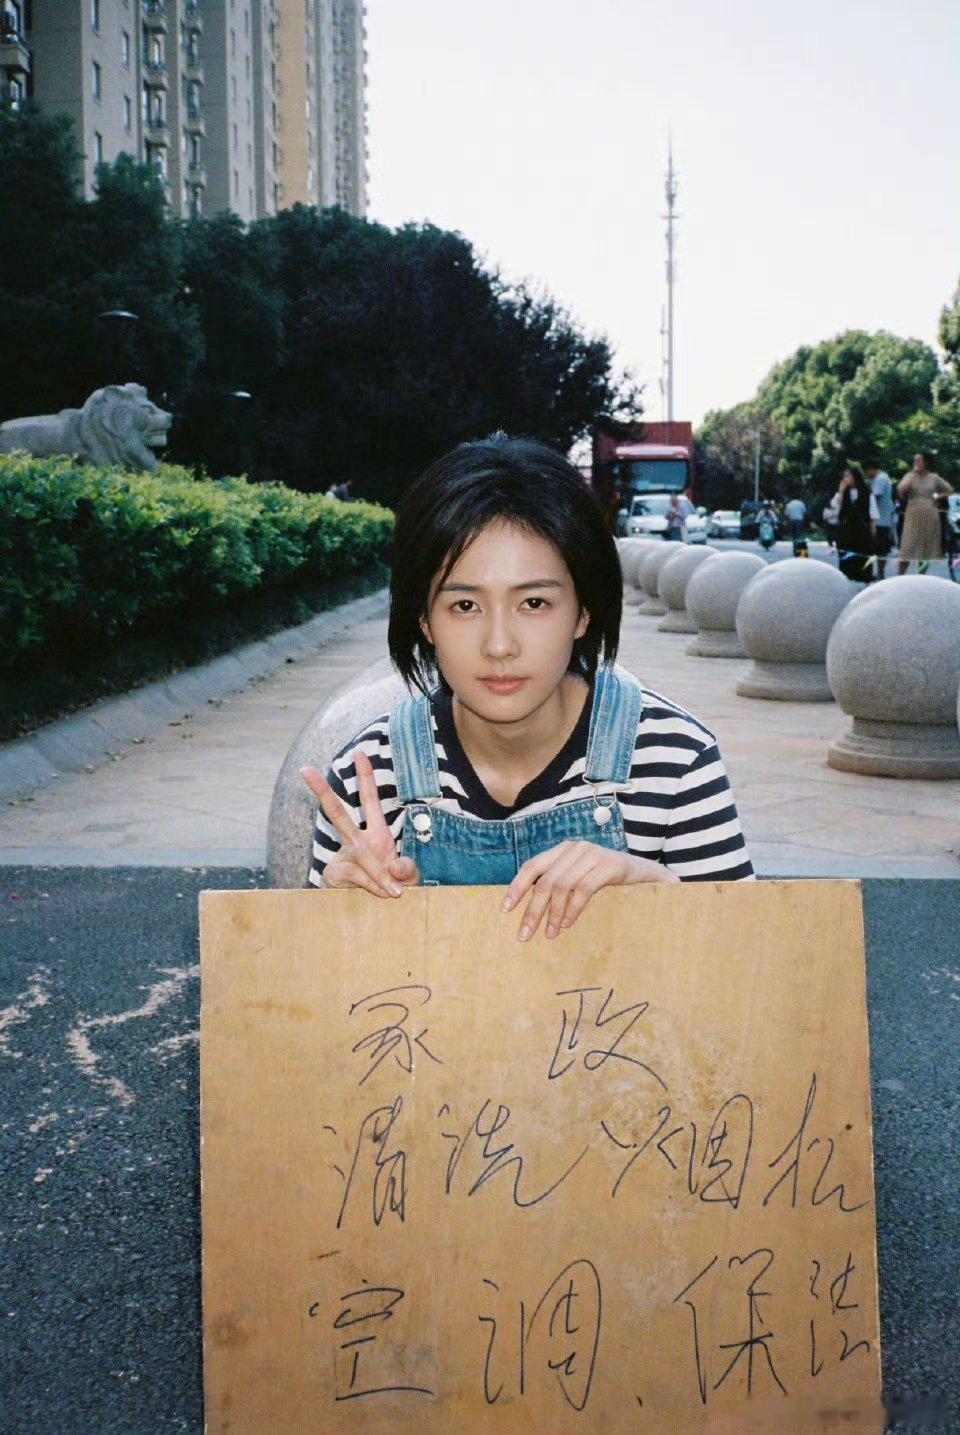 家 政
清洗油烟机
空调、保洁